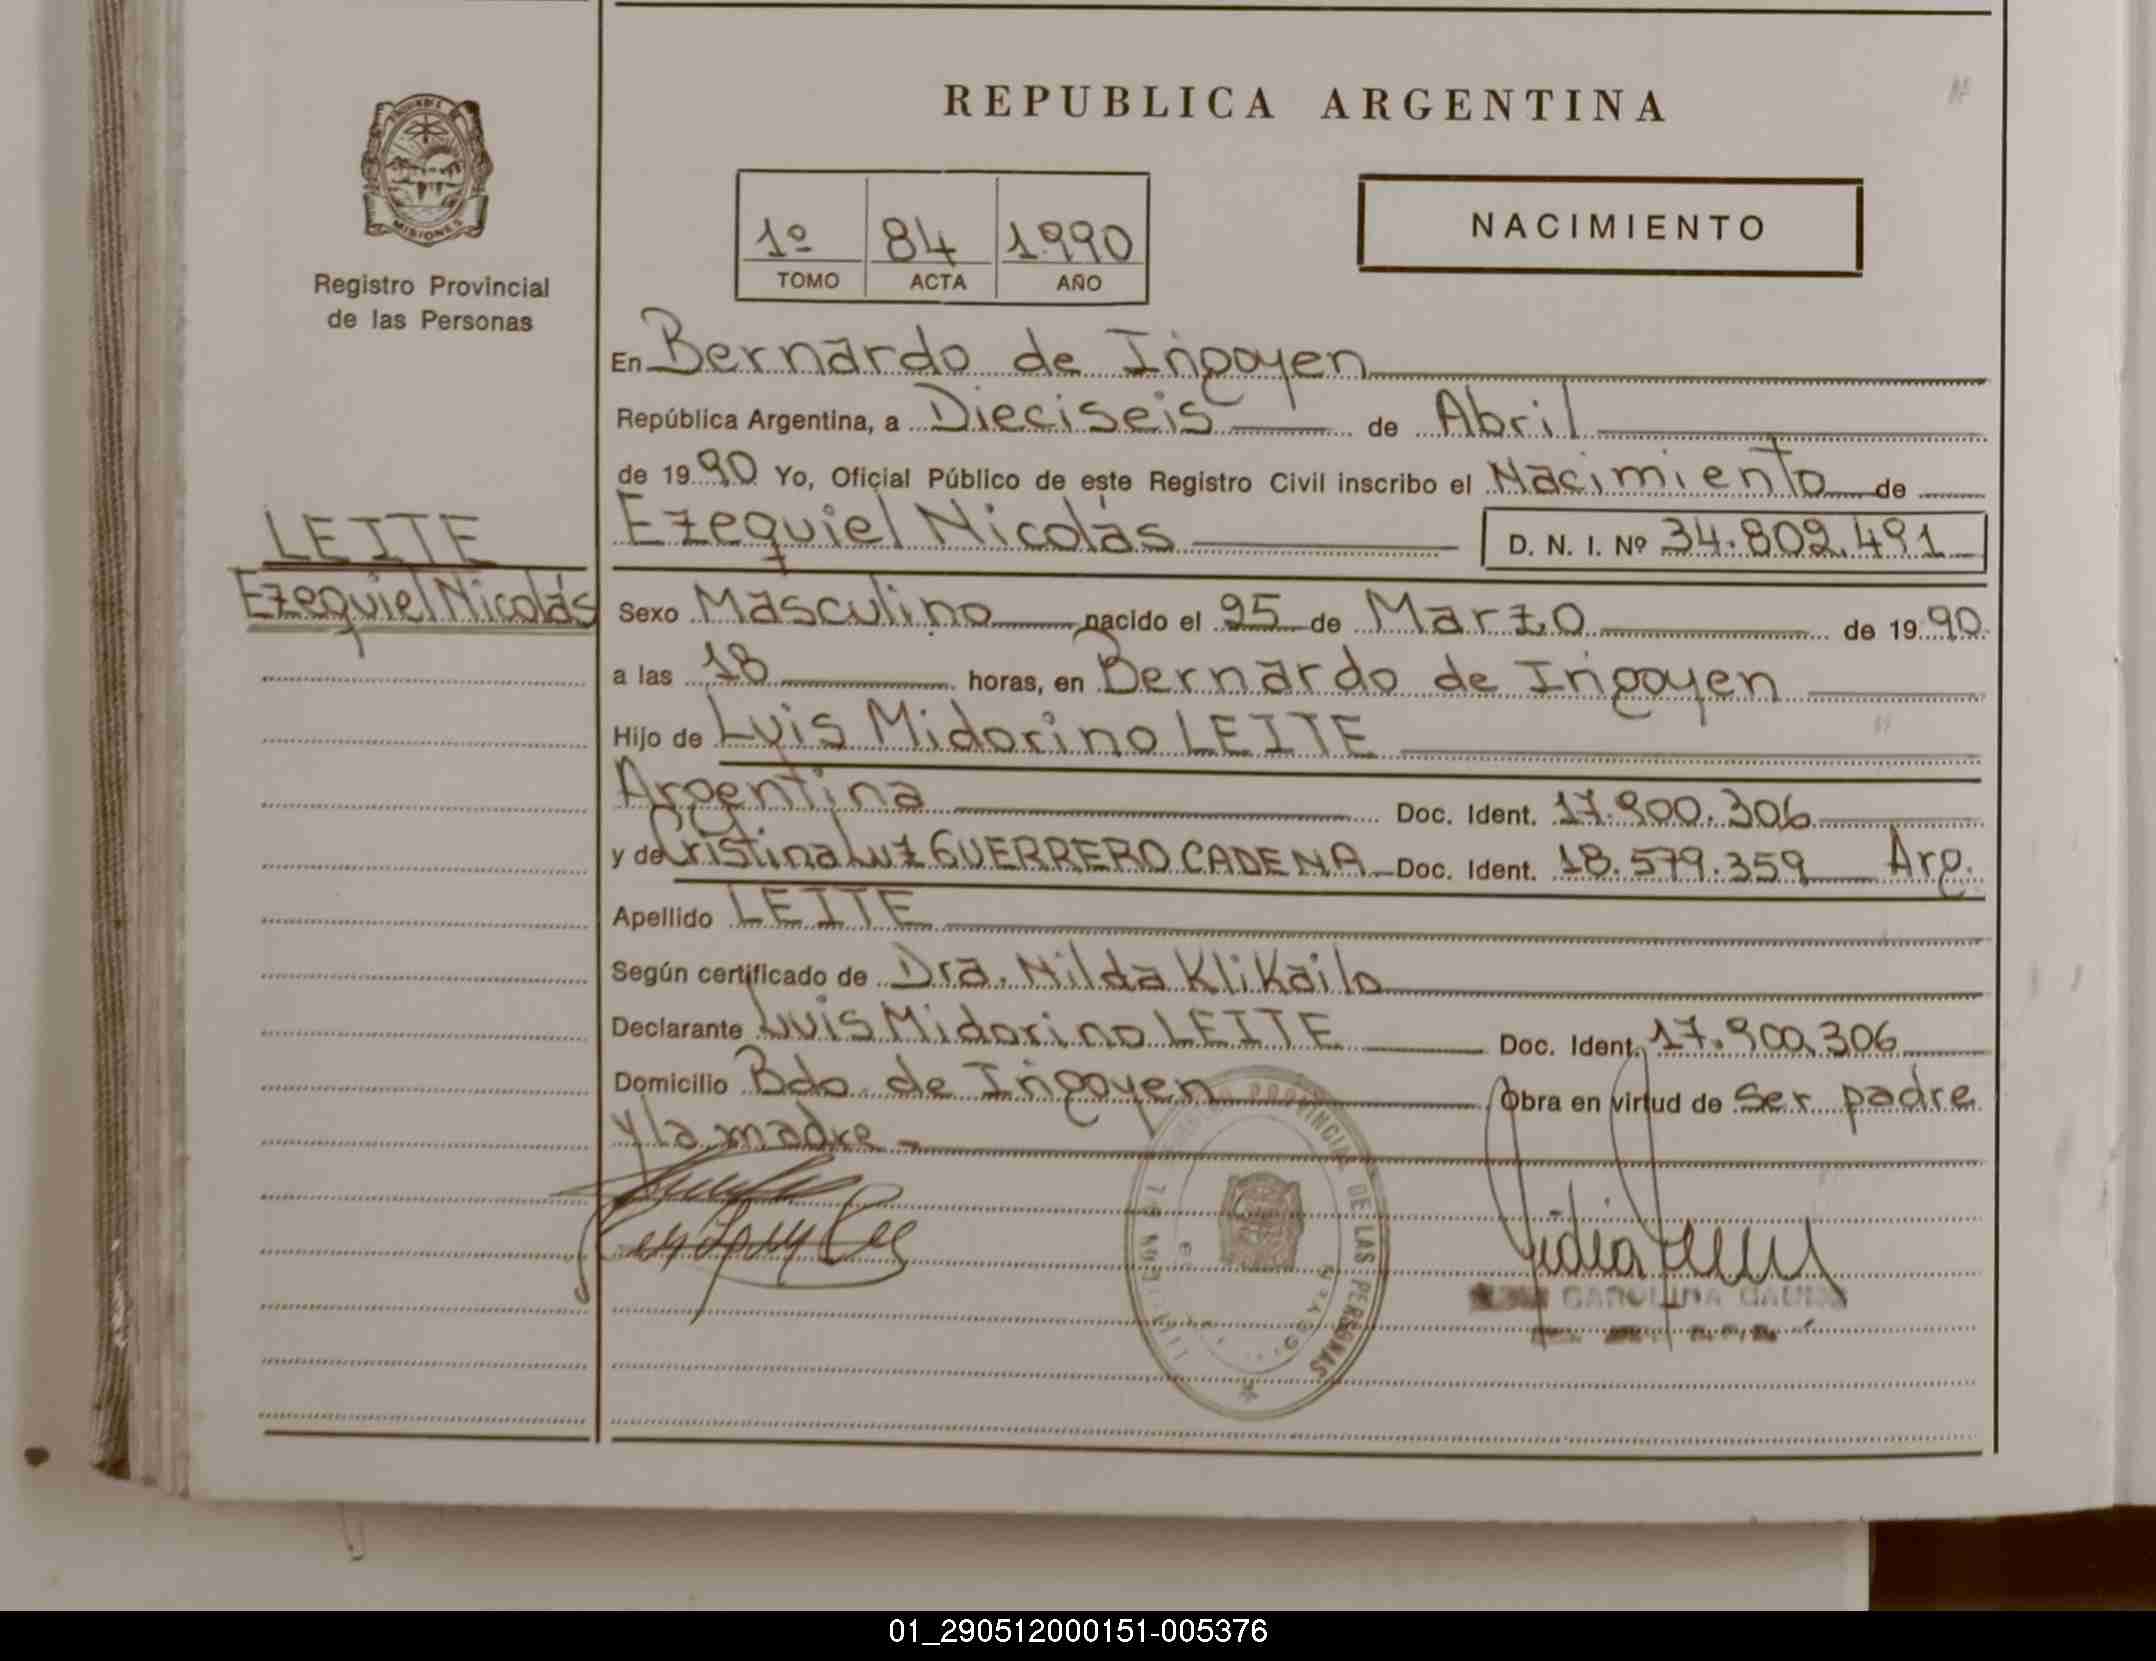 REPUBLICA ARGENTINA
MISIONES
Registro Provincial
de las Personas
1º 84 1990
TOMO ACTA AÑO
NACIMIENTO
En Bernardo de Irigoyen
República Argentina, a Dieciseis de Abril
de 1990 Yo, Oficial Público de este Registro Civil inscribo el Nacimiento de
Ezequiel Nicolás D. N. I. Nº 34.802.491
LEITE
Ezequiel Nicolás
Sexo Masculino nacido el 25 de Marzo de 1990
a las 18 horas, en Bernardo de Irigoyen
Hijo de Luis Midorino LEITE
Argentina Doc. Ident. 17.900.306
y de Cristina Luz GUERRERO CADENA Doc. Ident. 18.579.359 Arg.
Apellido LEITE
Según certificado de Dra. Nilda Klikailo
Declarante Luis Midorino LEITE Doc. Ident. 17.900.306
Domicilio Bdo. de Irigoyen Obra en virtud de ser padre
y la madre
PROVINCIAL DE LAS PERSONAS
CAROLINA
01_290512000151-005376